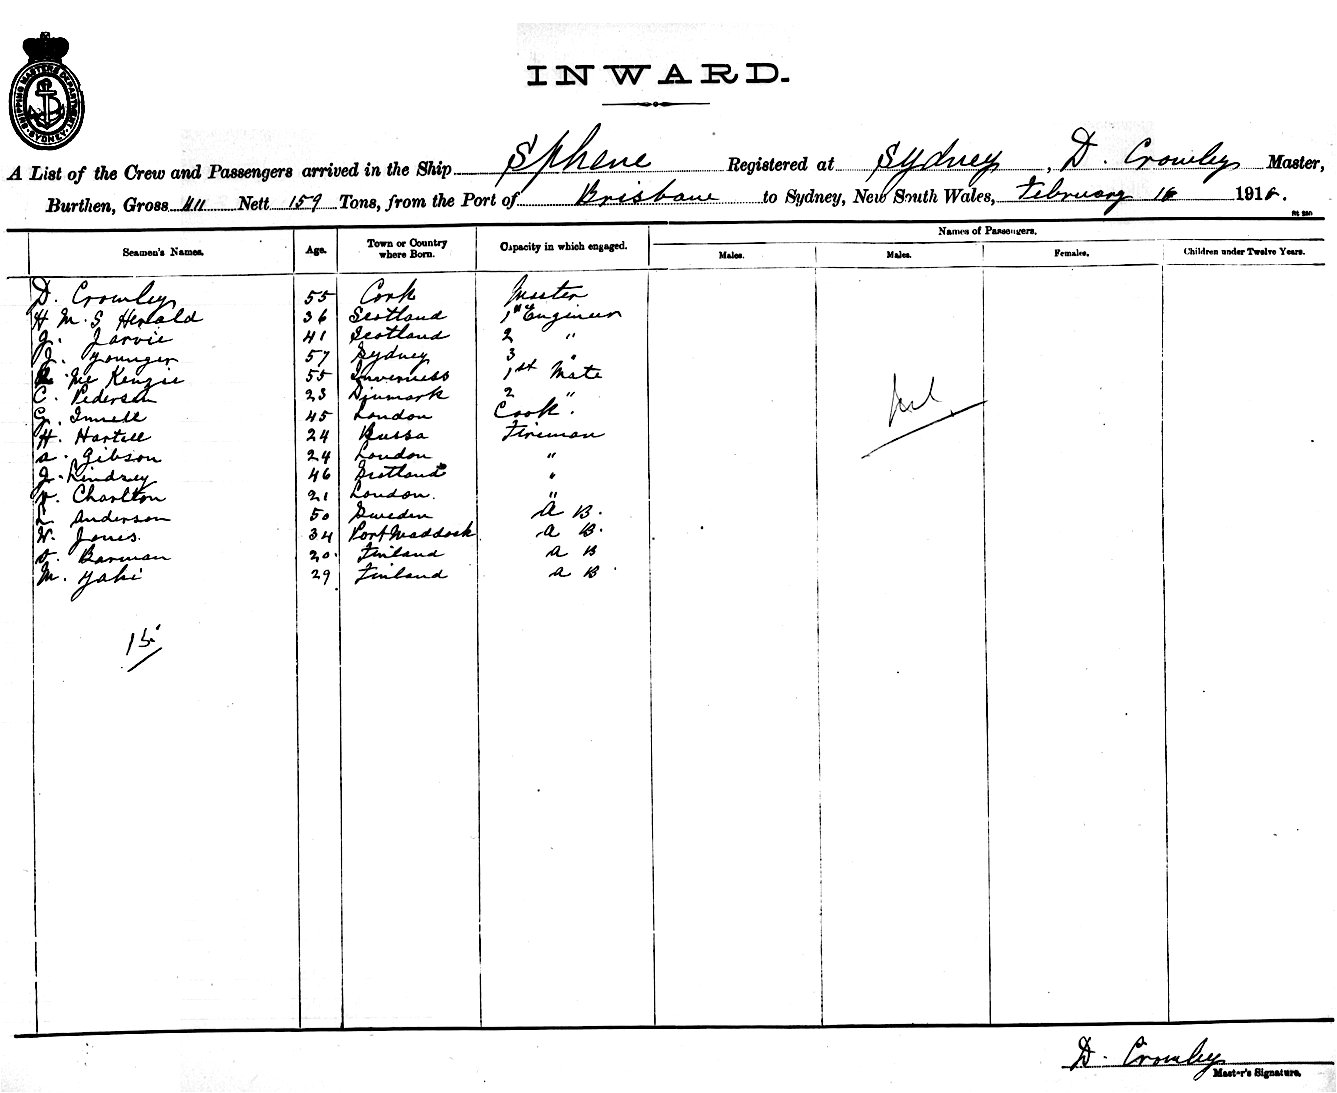 SHIPPING MASTERS DEPARTMENT
SYDNEY
INWARD.
A List of the Crew and Passengers arrived in the Ship Sphene Registered at Sydney, D. Crowley Master,
Burthen, Gross 411 Nett 159 Tons, from the Port of Brisbane to Sydney, New South Wales, February 16 1916.
Names of Passengers.
Seamen's Names. Age. Town or Country where Born. Capacity in which engaged. Males. Males. Females. Children under Twelve Years.
D. Crowley 55 Cork Master
H M. S Herald 36 Scotland 1st Engineer
J. Jarvie 41 Scotland 2 "
J. Younger 57 Sydney 3 "
Mc Kenzie 55 Inverness 1st Mate
C. Pedersen 23 Dinmark 2 "
G. 45 London Cook.
H. Hartell 24 Russa Fireman
A. Gibson 24 London "
J. Lindsey 46 Scotland "
Charlton 21 London. "
L Anderson 50 Sweden A B.
W. Jones. 34 Port Maddock A B.
Barman 20 Finland A B
M. Yaki 29 Finland A B
Nil
15
D. Crowley
Master's Signature.